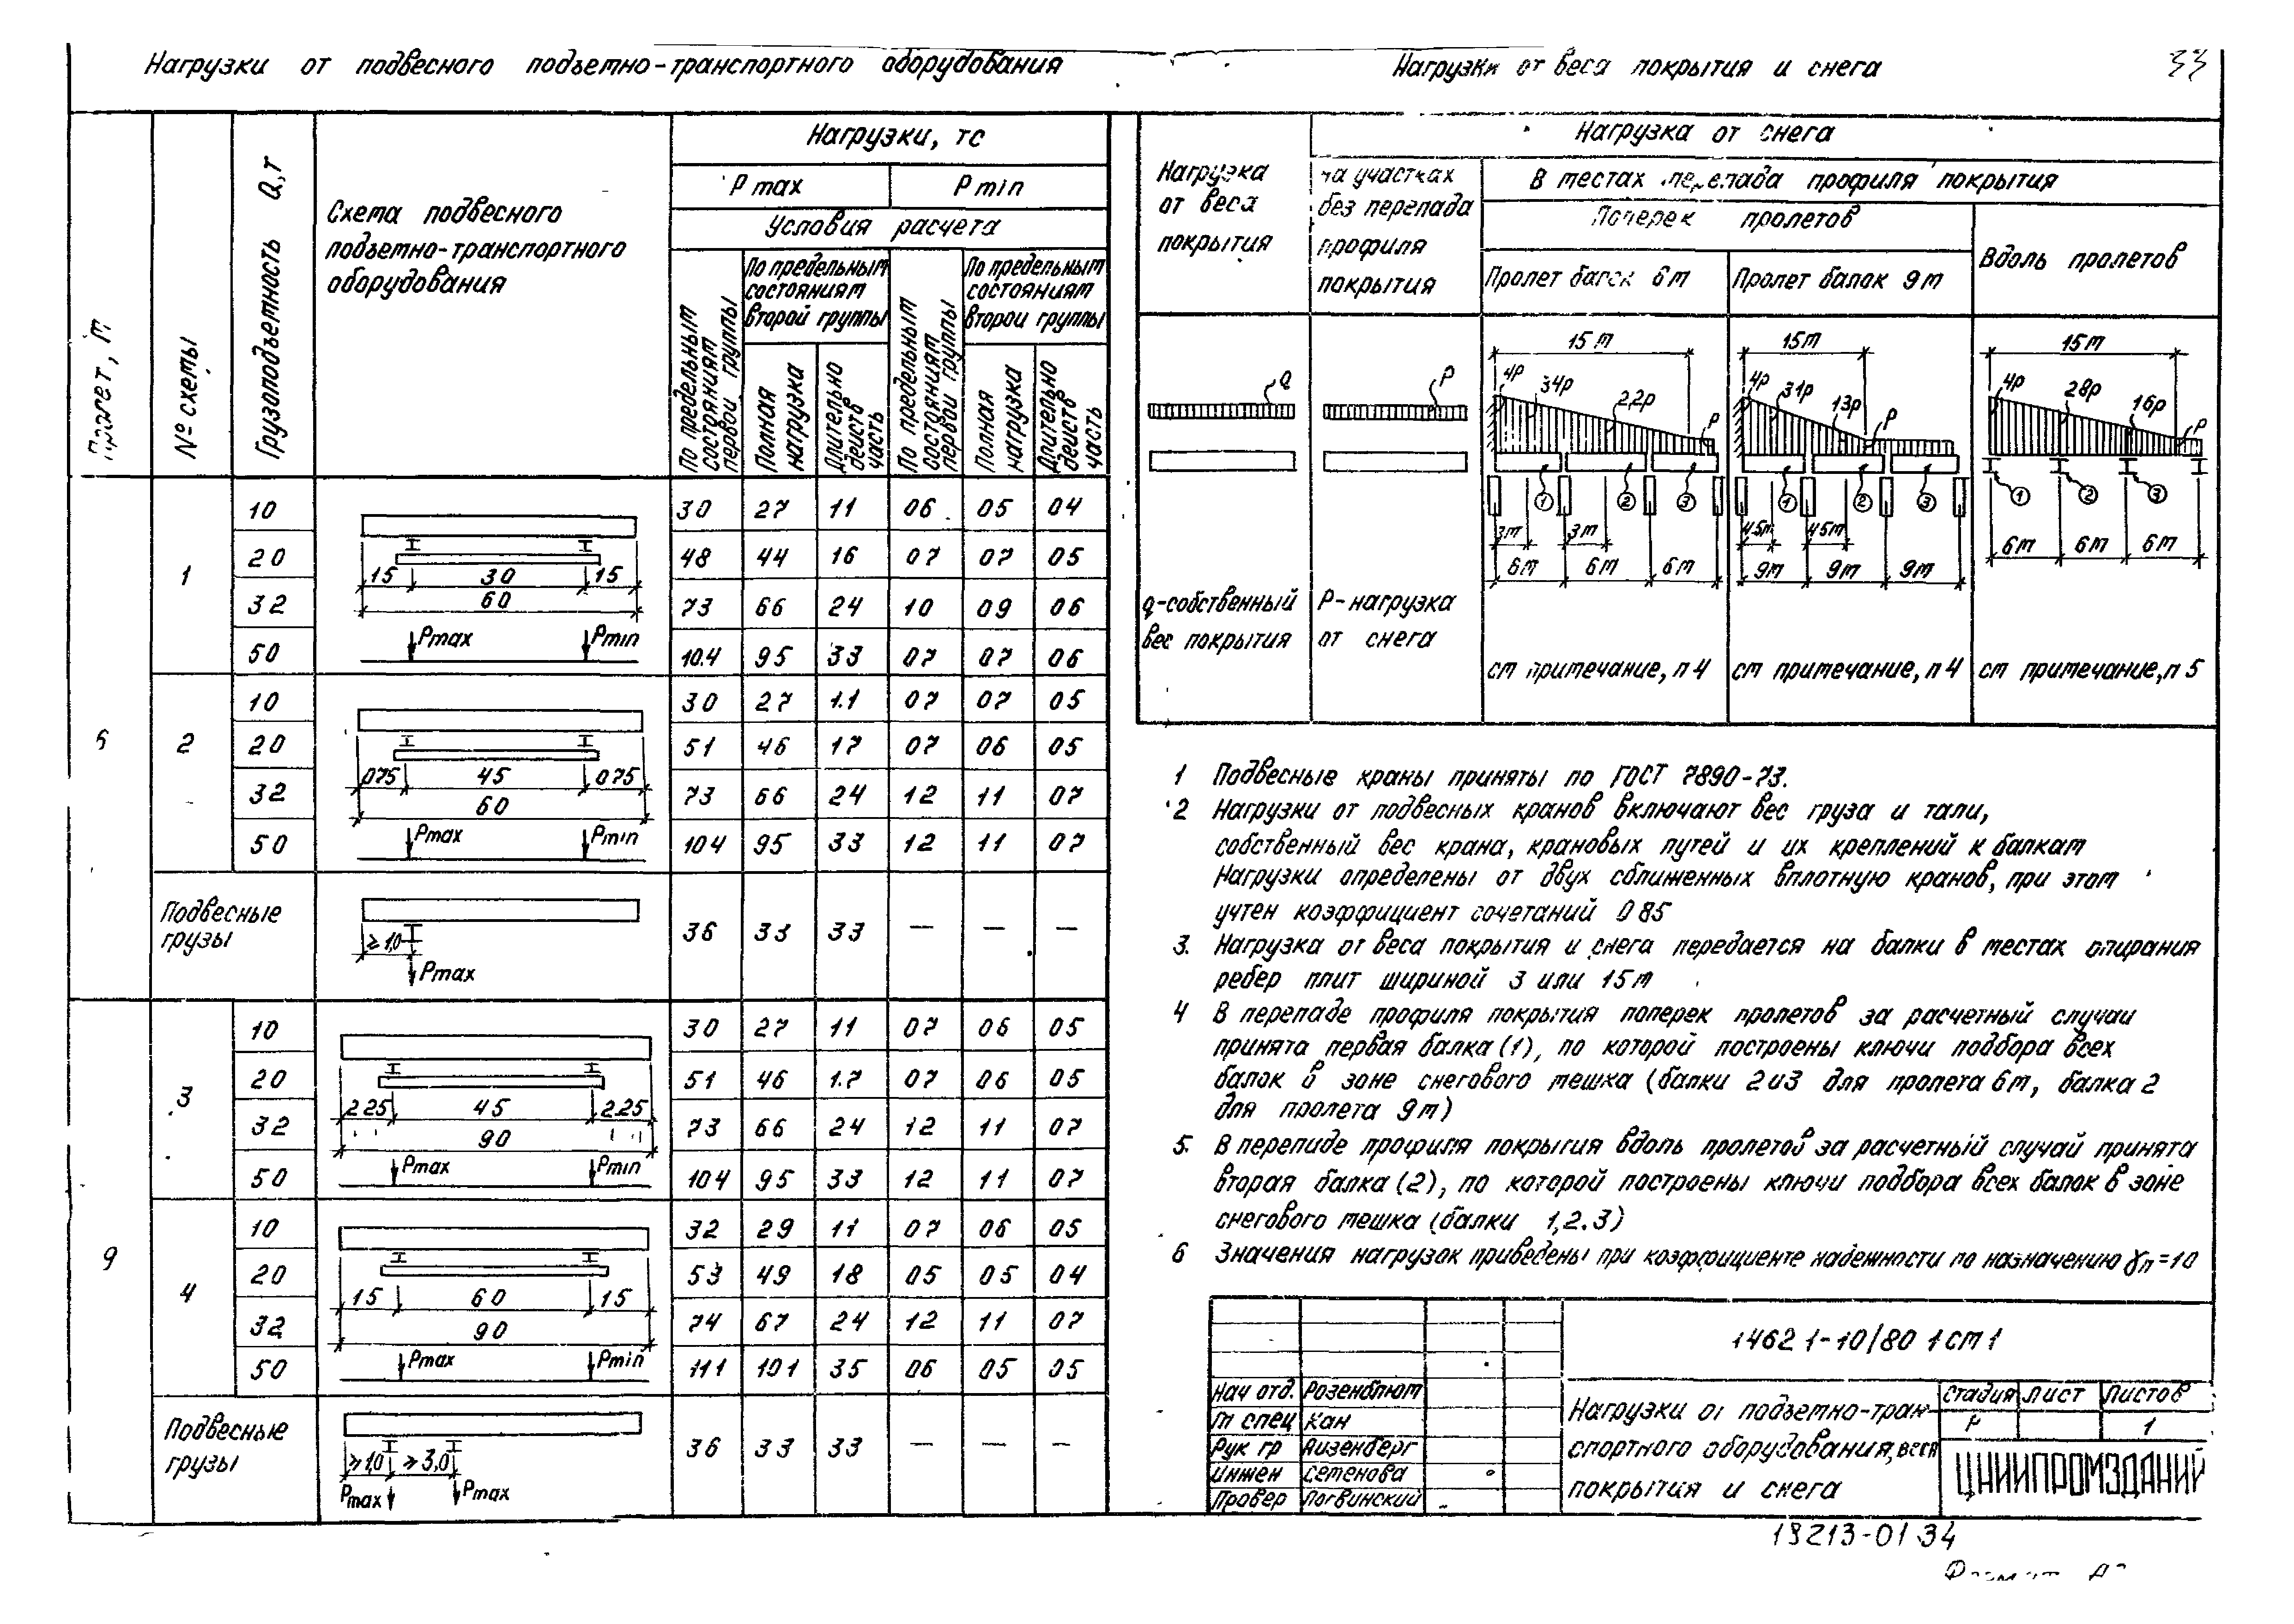 Нагрузки от подвесного подъемно-транспортного оборудования
Нагрузки от веса покрытия и снега
33
Пролет, м
№ схемы
Грузоподъемность Q, т
Схема подвесного
подъемно-транспортного
оборудования
Нагрузки, тс
Pmax
Pmin
Условия расчета
По предельным состояниям первой группы
По предельным состояниям второй группы
Полная нагрузка
Длительно действ часть
По предельным состояниям первой группы
По предельным состояниям второй группы
Полная нагрузка
Длительно действ часть
6
1
15 30 15
60
Pmax Pmin
10 30 27 11 06 05 04
20 48 44 16 07 07 05
32 73 66 24 10 09 06
50 10.4 95 33 07 07 06
2
075 45 075
60
Pmax Pmin
10 30 27 1.1 07 07 05
20 51 46 17 07 06 05
32 73 66 24 12 11 07
50 104 95 33 12 11 07
Подвесные
грузы
≥1,0
Pmax
36 33 33 — — —
9
3
2 25 45 2.25
90
Pmax Pmin
10 30 27 11 07 06 05
20 51 46 1.7 07 06 05
32 73 66 24 12 11 07
50 104 95 33 12 11 07
4
15 60 15
90
Pmax Pmin
10 32 29 11 07 06 05
20 53 49 18 05 05 04
32 74 67 24 12 11 07
50 111 101 35 06 05 05
Подвесные
грузы
≥1,0 ≥3,0
Pmax Pmax
36 33 33 — — —
Нагрузка
от веса
покрытия
Нагрузка от снега
на участках
без перепада
профиля
покрытия
В местах перепада профиля покрытия
Поперек пролетов
Вдоль пролетов
Пролет балок 6м
Пролет балок 9м
q
q-собственный
вес покрытия
P
P-нагрузка
от снега
15м
4p 34p 2,2p p
1 2 3
3м 3м
6м 6м 6м
см примечание, п 4
15м
4p 31p 13p p
1 2 3
45м 45м
9м 9м 9м
см примечание, п 4
15м
4p 28p 16p p
1 2 3
6м 6м 6м
см примечание, п 5
1 Подвесные краны приняты по ГОСТ 7890-73.
2 Нагрузки от подвесных кранов включают вес груза и тали,
собственный вес крана, крановых путей и их креплений к балкам
Нагрузки определены от двух сближенных вплотную кранов, при этом
учтен коэффициент сочетаний 0 85
3. Нагрузка от веса покрытия и снега передается на балки в местах опирания
ребер плит шириной 3 или 15м
4 В перепаде профиля покрытия поперек пролетов за расчетный случаи
принята первая балка (1), по которой построены ключи подбора всех
балок в зоне снегового мешка (балки 2 и 3 для пролета 6м, балка 2
для пролета 9м)
5. В перепаде профиля покрытия вдоль пролетов за расчетный случай принята
вторая балка (2), по которой построены ключи подбора всех балок в зоне
снегового мешка (балки 1,2.3)
6 Значения нагрузок приведены при коэффициенте надежности по назначению γn=10
1462 1-10/80 1 см 1
Нач отд. Розенблюм
Гл спец Кан
Рук гр Айзенберг
Инжен Семенова
Провер Логвинский
Нагрузки от подъемно-тран-
спортного оборудования, веса
покрытия и снега
Стадия Лист Листов
Р 1
ЦНИИПРОМЗДАНИЙ
18213-01 34
Формат